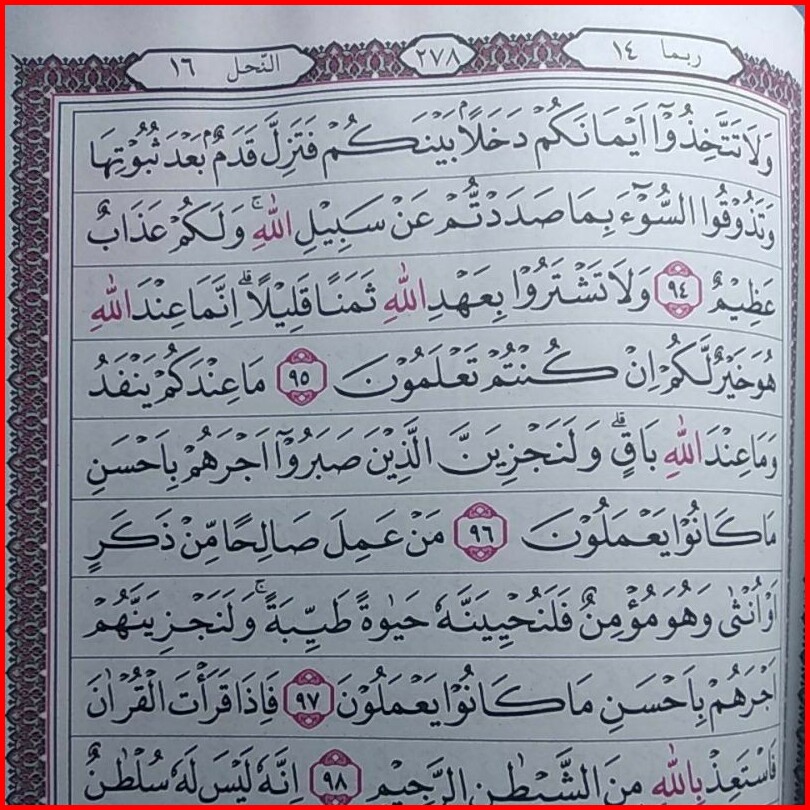 ربما ١٤
٢٧٨
النّحل ١٦
وَلَا تَتَّخِذُوْٓا اَيْمَانَكُمْ دَخَلًاۢ بَيْنَكُمْ فَتَزِلَّ قَدَمٌۢ بَعْدَ ثُبُوْتِهَا
وَتَذُوْقُوا السُّوْۤءَ بِمَا صَدَدْتُّمْ عَنْ سَبِيْلِ اللّٰهِۚ وَلَكُمْ عَذَابٌ
عَظِيْمٌ ٩٤ وَلَا تَشْتَرُوْا بِعَهْدِ اللّٰهِ ثَمَنًا قَلِيْلًاۗ اِنَّمَا عِنْدَ اللّٰهِ
هُوَ خَيْرٌ لَّكُمْ اِنْ كُنْتُمْ تَعْلَمُوْنَ ٩٥ مَا عِنْدَكُمْ يَنْفَدُ
وَمَا عِنْدَ اللّٰهِ بَاقٍۗ وَلَنَجْزِيَنَّ الَّذِيْنَ صَبَرُوْٓا اَجْرَهُمْ بِاَحْسَنِ
مَا كَانُوْا يَعْمَلُوْنَ ٩٦ مَنْ عَمِلَ صَالِحًا مِّنْ ذَكَرٍ
اَوْ اُنْثٰى وَهُوَ مُؤْمِنٌ فَلَنُحْيِيَنَّهٗ حَيٰوةً طَيِّبَةًۚ وَلَنَجْزِيَنَّهُمْ
اَجْرَهُمْ بِاَحْسَنِ مَا كَانُوْا يَعْمَلُوْنَ ٩٧ فَاِذَا قَرَأْتَ الْقُرْاٰنَ
فَاسْتَعِذْ بِاللّٰهِ مِنَ الشَّيْطٰنِ الرَّجِيْمِ ٩٨ اِنَّهٗ لَيْسَ لَهٗ سُلْطٰنٌ